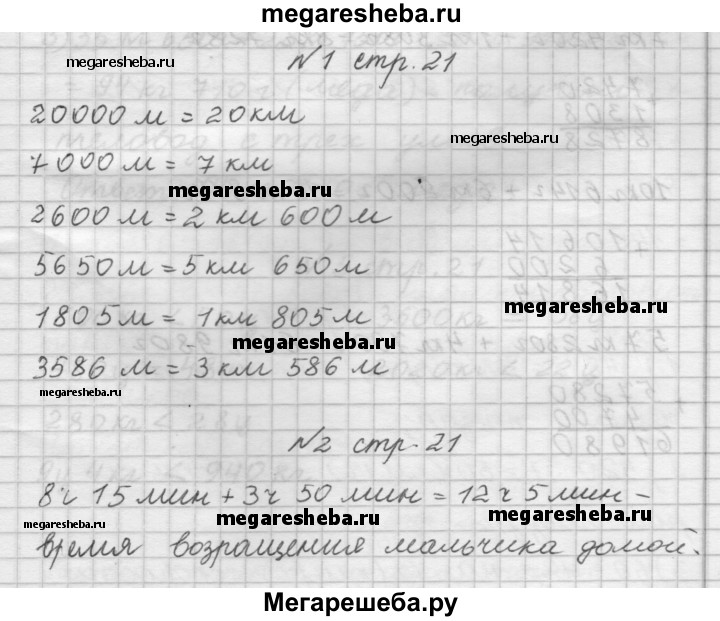 megaresheba.ru
megaresheba.ru
№1 стр. 21
20000 м = 20 км
megaresheba.ru
7000 м = 7 км
megaresheba.ru
2600 м = 2 км 600 м
5650 м = 5 км 650 м
megaresheba.ru
1805 м = 1 км 805 м
megaresheba.ru
3586 м = 3 км 586 м
megaresheba.ru
№2 стр. 21
8ч 15 мин + 3ч 50 мин = 12ч 5 мин –
megaresheba.ru
megaresheba.ru
megaresheba.ru
время возращения мальчика домой.
Мегарешеба.ру